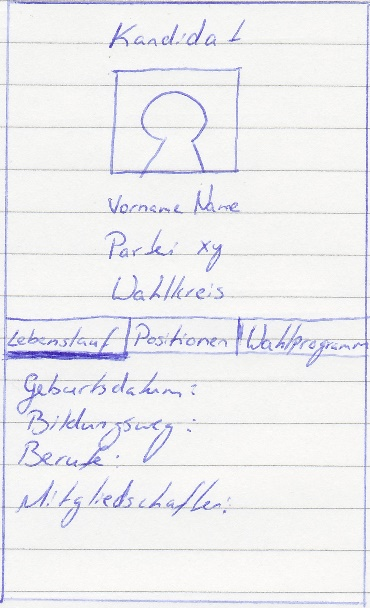 Kandidat
Vorname Name
Partei xy
Wahlkreis
Lebenslauf Positionen Wahlprogramm
Geburtsdatum:
Bildungsweg:
Berufe:
Mitgliedschaften: